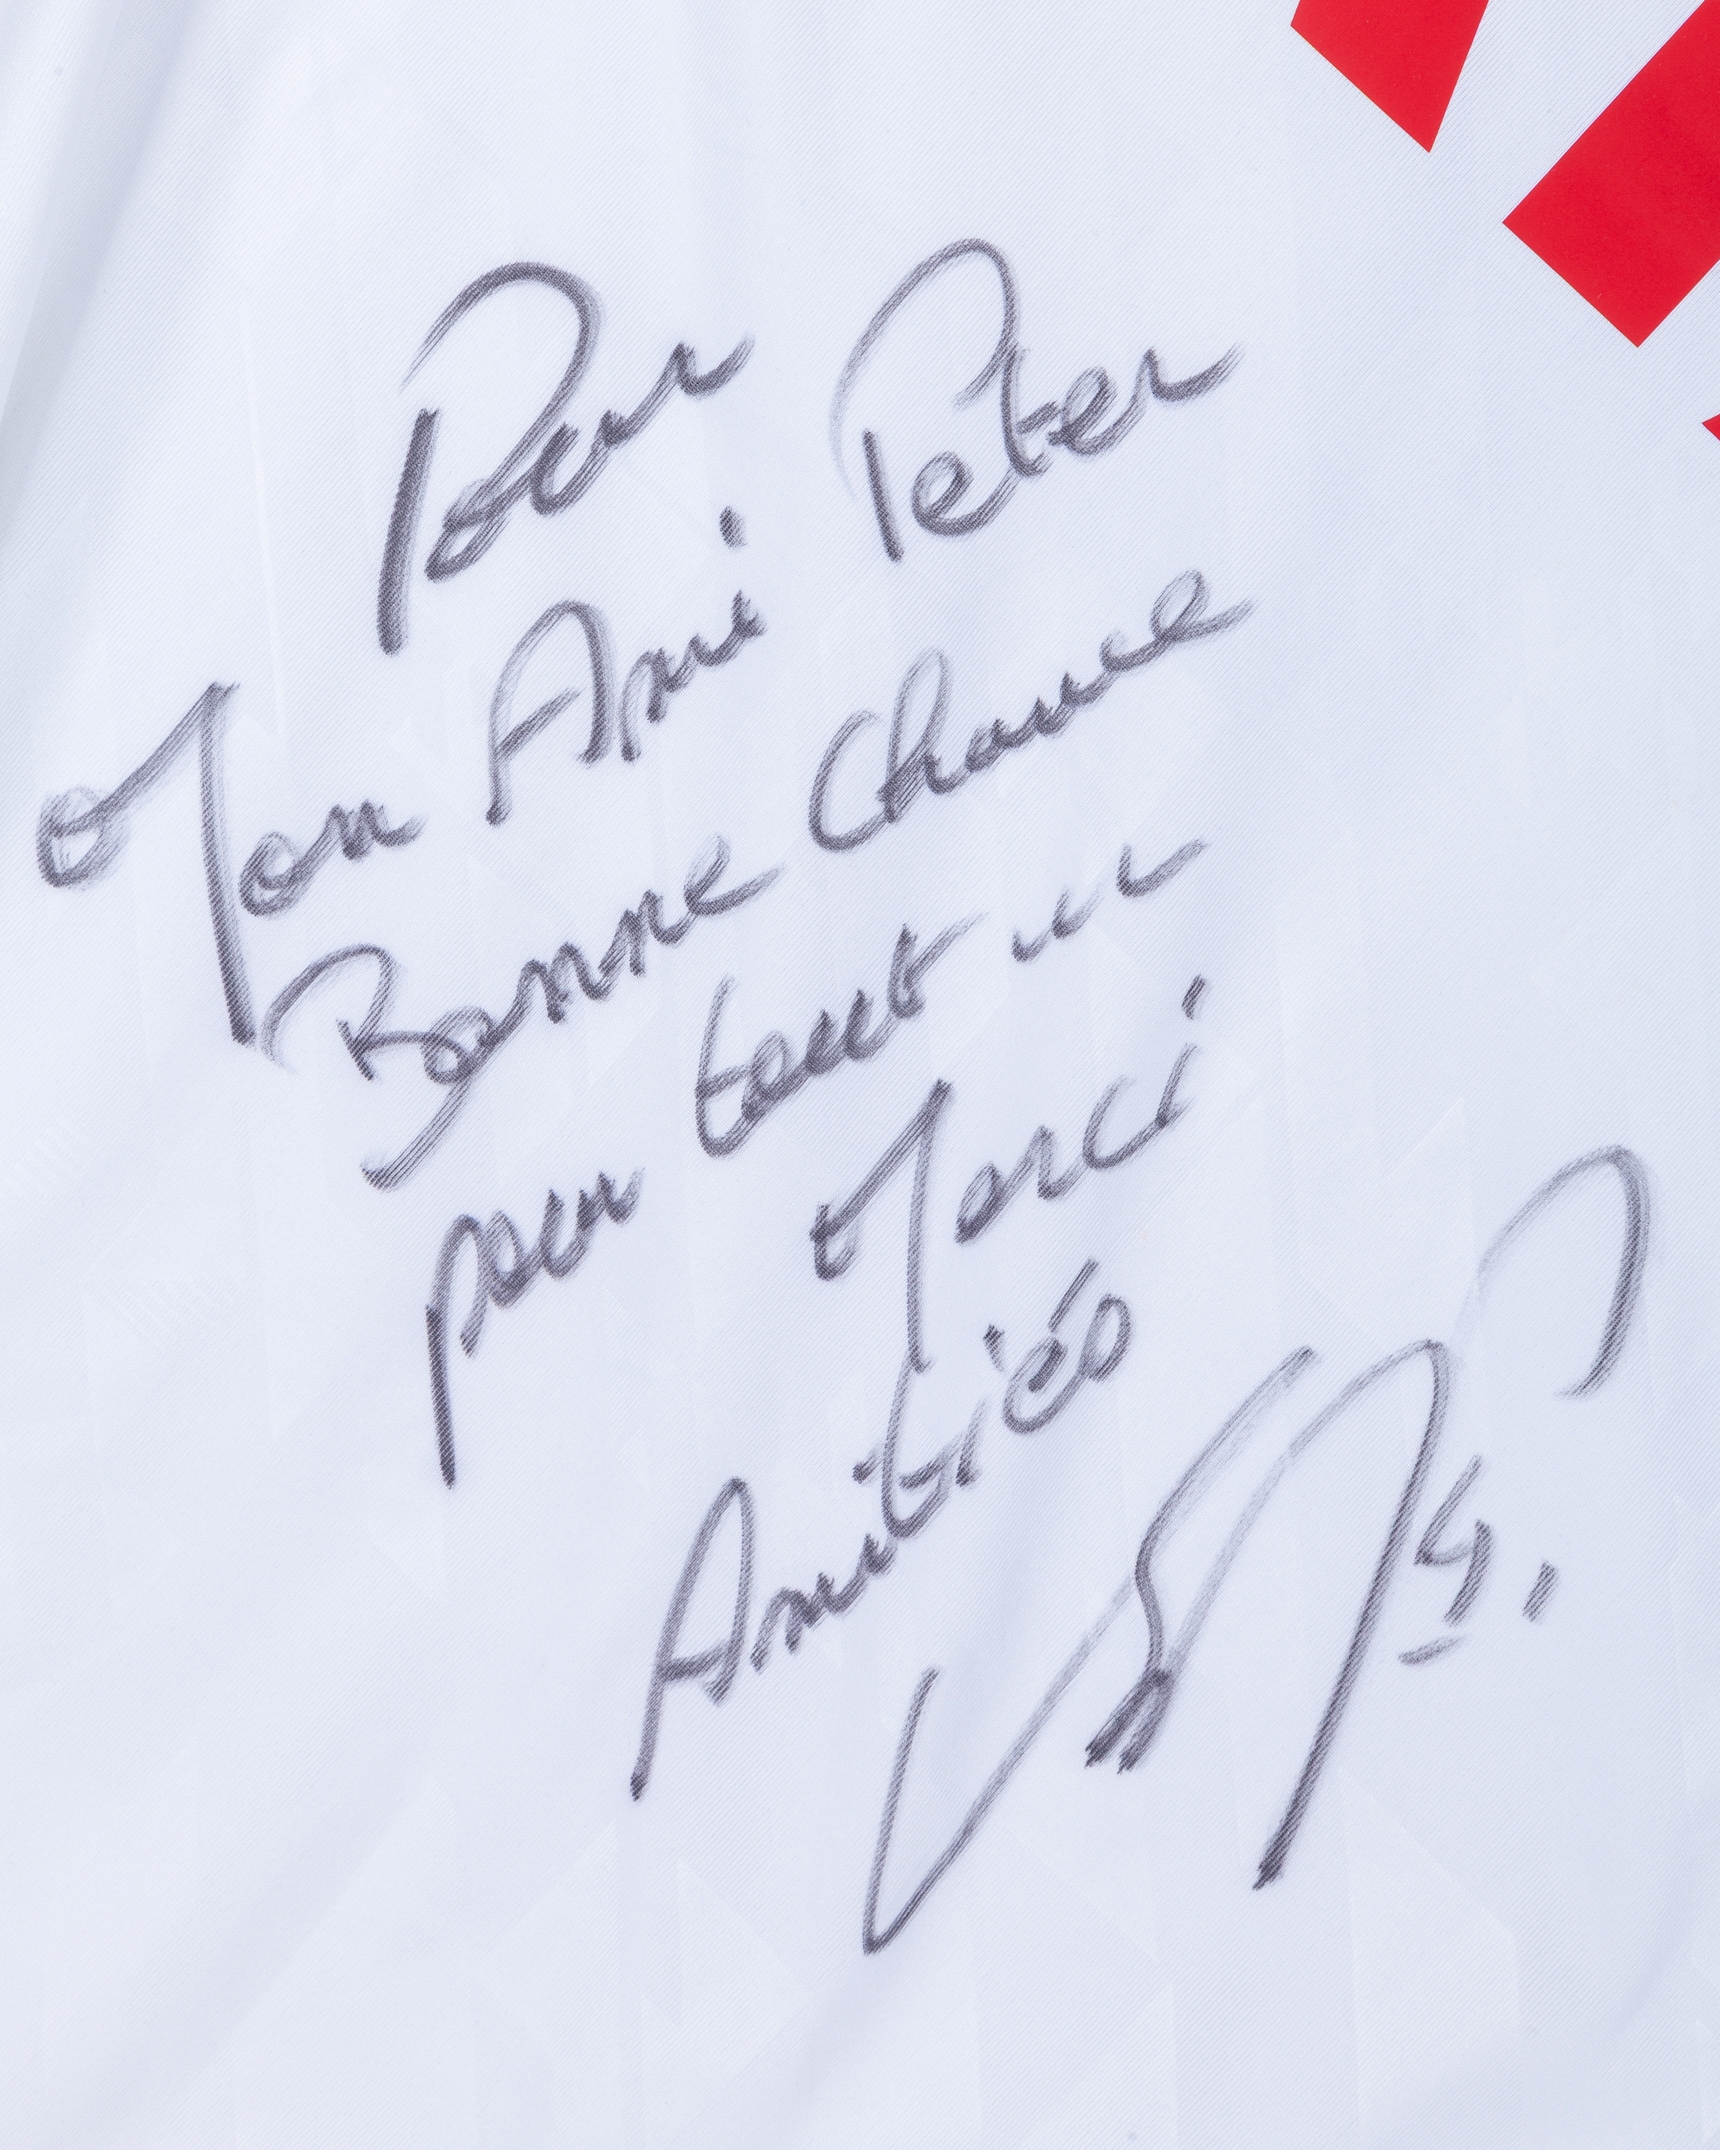 Pour Peter
Mon Ami
Bonne Chance
pour tout
Merci
Amitiés